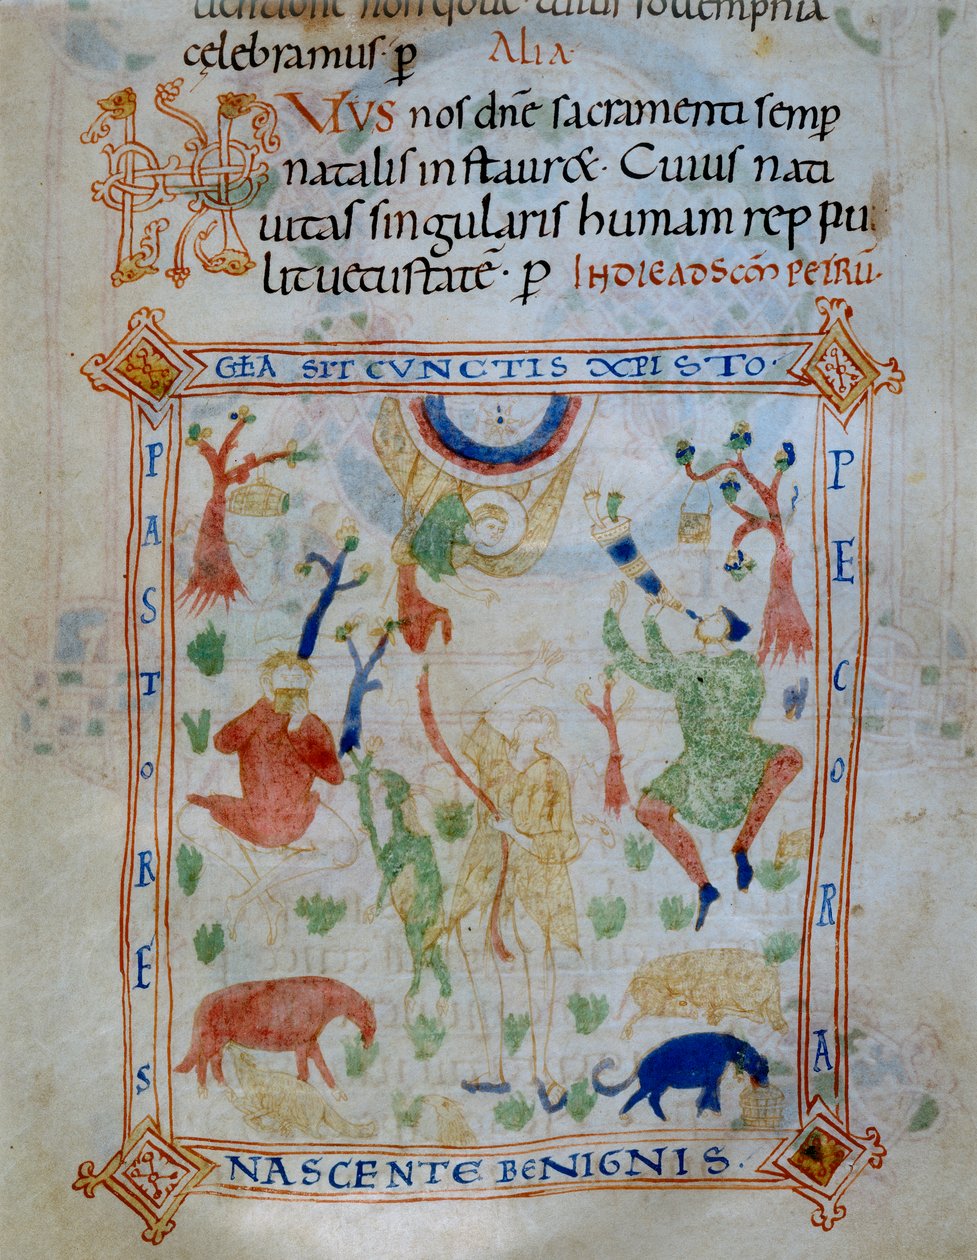 celebramus· p̄ Alia·
HUIUS nos dnē sacramenta semp
natalis instauret· Cuius nati
uitas singularis humanam reppu
lit uetustatē· p̄ IHDIE AD Scm̄ PETRŪ·
GLĀ SIT CVNCTIS XPISTO·
PASTORES
PECORA
NASCENTE BENIGNIS·